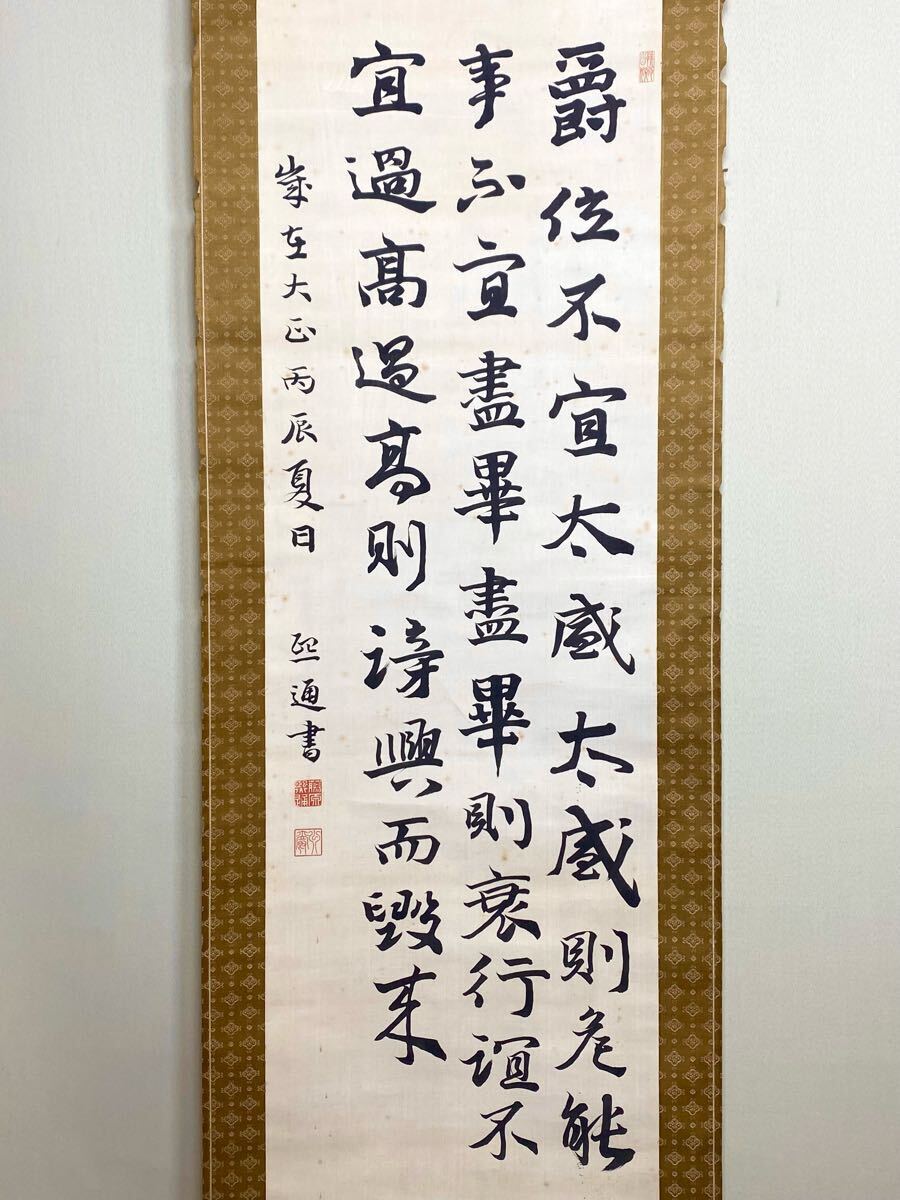 爵位不宜太盛太盛則危能
事不宜盡畢盡畢則衰行誼不
宜過高過高則謗興而毀来
歳在大正丙辰夏日 熙通書